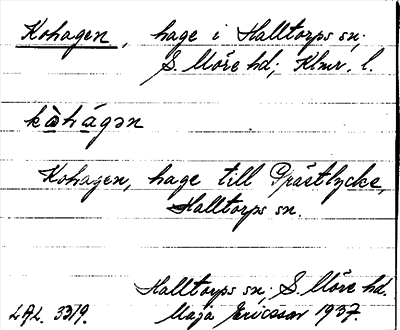 Kohagen, hage i Halltorps sn;
S. Möre hd; Klmr. l.
kòhágən
Kohagen, hage till Prästlycke,
Halltorps sn.
Halltorps sn; S. Möre hd.
LAL. 3319. Maja Ericsson 1937.